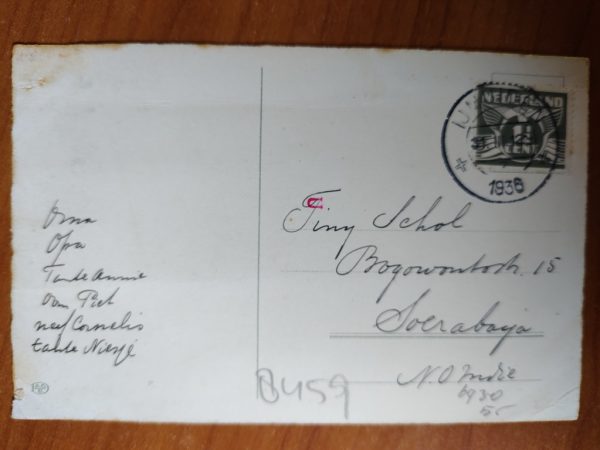 Oma
Opa
Tante Annie
Oom Piet
neef Cornelis
tante Niesje
NEDERLAND
31
1936
Tiny Schol
Bogowontostr. 15
Soerabaja
N.O Indie
1930
B459